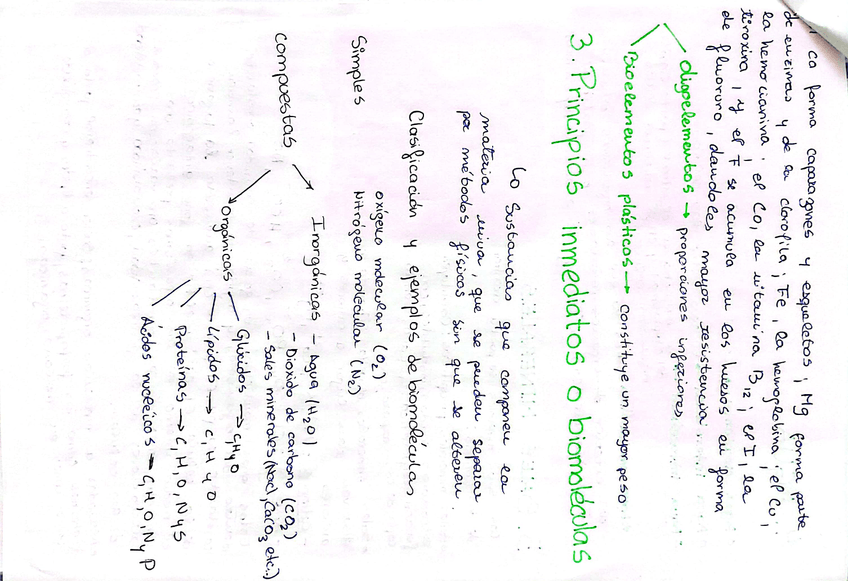 Ca forma caparazones y esqueletos; Mg forma parte
de enzimas y de la clorofila; Fe, la hemoglobina; el Cu,
la hemocianina; el Co, la vitamina B12; el I, la
tiroxina, y el F se acumula en los huesos en forma
de fluoruro, dandoles mayor resistencia.
oligoelementos → proporciones inferiores
Bioelementos plásticos → constituye un mayor peso
3. Principios inmediatos o biomoléculas
↳ Sustancias que componen la
materia viva, que se pueden separar
por métodos físicos sin que se alteren.
Clasificación y ejemplos de biomoléculas
Simples
oxígeno molecular (O2)
Nitrógeno molecular (N2)
Compuestas
Inorgánicas - Agua (H2O).
- Dioxido de carbono (CO2)
- Sales minerales (Nac), CaCO3 etc..)
Orgánicas
Glúcidos → C, H y O
Lípidos → C, H y O
Proteínas → C, H, O, N y S
Ácidos nucleicos → C, H, O, N y P